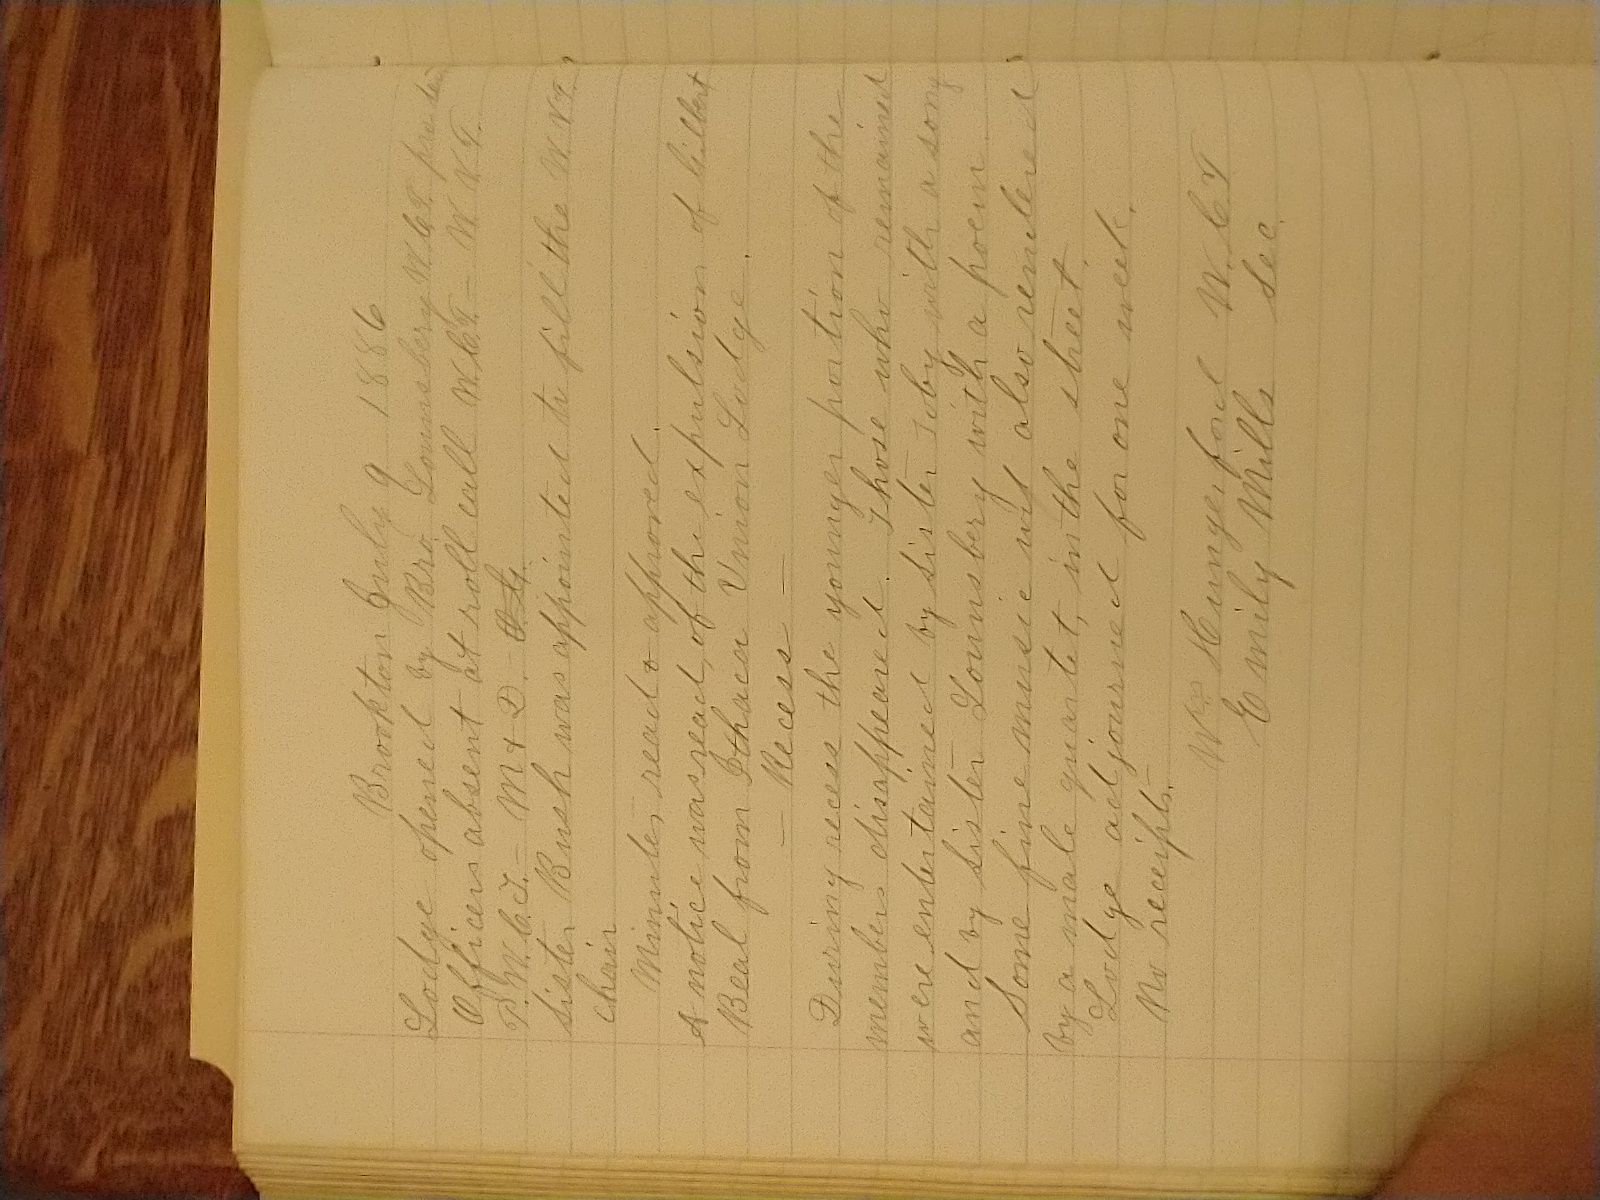 Brookton July 9 1886
Lodge opened by Bro. Lounsbery W.C.T. pro tem
Officers absent at roll call W.C.T. – W.V.T.
P.W.C.T. – M & D.
Sister Brush was appointed to fill the W.V.T.
chair
Minutes read & approved.
A notice was read, of the expulsion of Gilbert
Beal from Ithaca Union Lodge.
– Recess –
During recess the younger portion of the
members disappeared. Those who remained
were entertained by Sister Toby with a song
and by Sister Lounsbery with a poem.
Some fine music was also rendered
by a male quartet, in the street.
Lodge adjourned for one week.
No receipts. –
Wm Hungerford W.C.T
Emily Mills Sec.